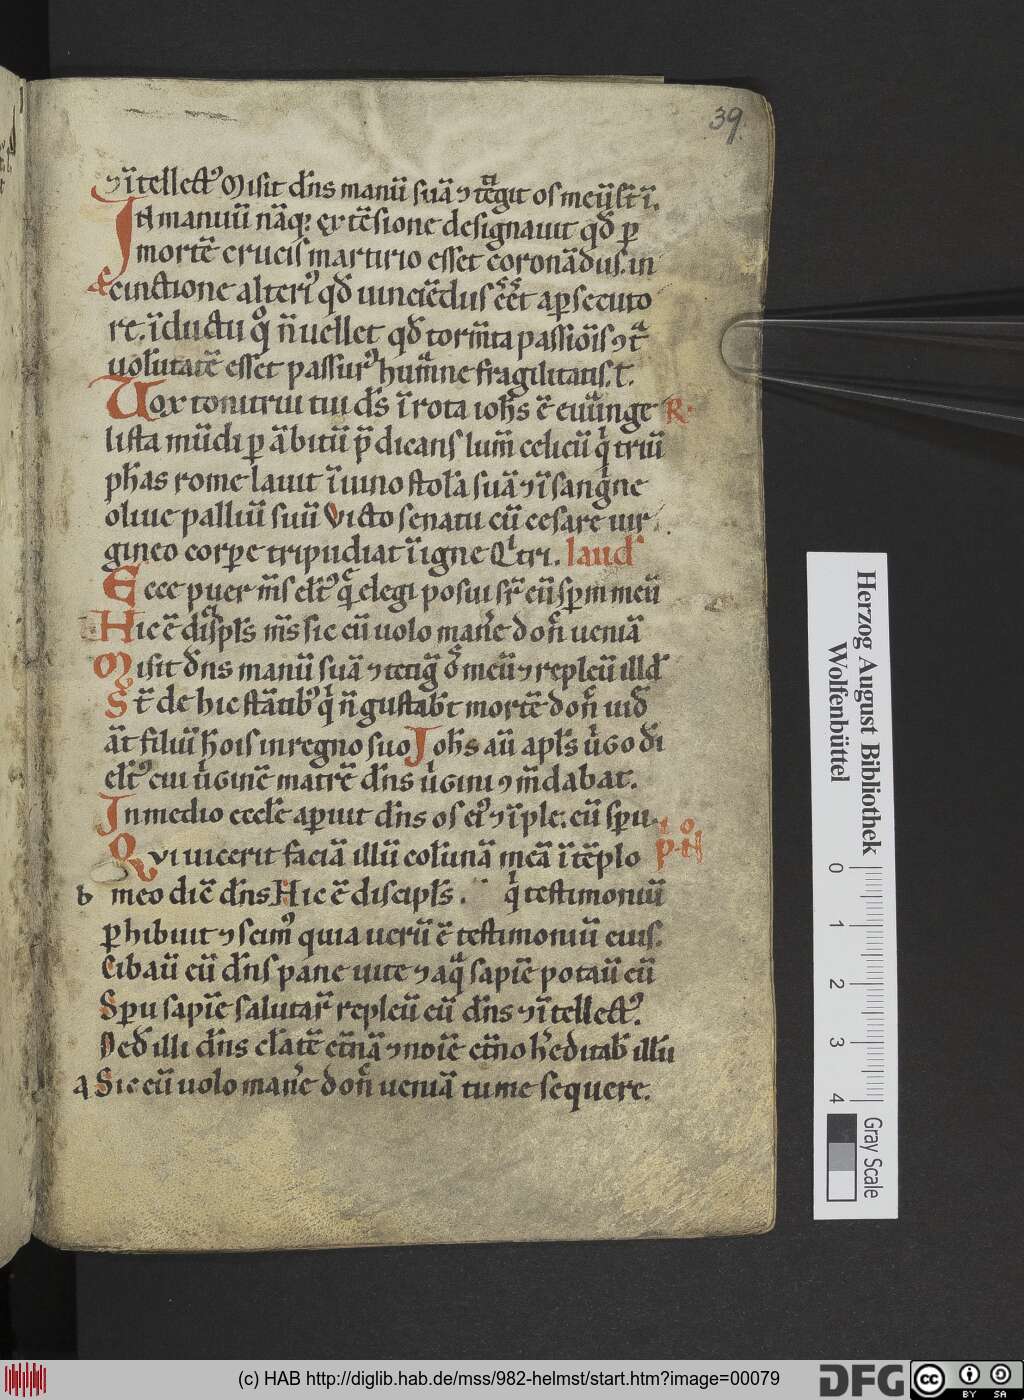 39.
⁊ ītellectꝰ Misit dn̄s manū suā ⁊ tetigit os meū ⁊ t̄ ī.
In manuū nāq; extēsione designauit qđ ꝑ
mortē crucis martirio esset coronādus. in
ꝑcinctione alteriꝰ qđ uinciēdus eēt a ꝑsecuto
re. īductu qͦ n̄ uellet qđ tormn̄ta passiōis ⁊
uolūtatē esset passurꝰ humane fragilitatis. t.
Uox tonitrui tui ds̄ ī rota ioh̄s ē euuange R.
lista mūdi ꝑ ābitū p̄dicans lum̄ celicū qͥ triū
ph̄as rome lauit ī uino stola suā ⁊ ī sangͥne
oliue palliū suū Victo senatu cū cesare uir
gineo corꝑe tripudiat ī igne Qͥ tri. laud̄
Ecce puer ms̄ elc̄tꝰ quē elegi posui sr̄ eū spm meū
Hic ē discipl̄s ms̄ sic eū uolo man̄e don̄ ueniā
Misit dn̄s manū suā ⁊ tetiḡ os meū ⁊ repleū ill̄
St̄ de hic stātibꝰ qͥ n̄ gustab̄t mortē don̄ uid̄
āt filiū hois in regno suo Joh̄s aū apl̄s uͥgo di
elc̄tꝰ cui uͥginē matrē dn̄s uͥgini ⁊m̄dabat.
In medio eccl̄e aꝑuit dn̄s os eiꝰ ⁊ īple. eū spu.
Qui uicerit faciā illū colūnā meā ī tēplo
b meo dic̄ dn̄s Hic ē discipl̄s. qͥ testimoniū
ꝑhibuit ⁊ scimꝰ quia uerū ē testimoniū eius.
Cibaū eū dn̄s pane uite ⁊ aqͣ sapiē potaū eū
Spu sapiē salutar̄ repleū eū dn̄s ⁊ ītellectꝰ.
Ded̄ illi dn̄s cl̄atē et̄nā ⁊ noīe et̄no h̄editab̄ illū
a Sic eū uolo man̄e don̄ ueniā tu me sequere.
Herzog August Bibliothek
Wolfenbüttel
0 1 2 3 4
Gray Scale
(c) HAB http://diglib.hab.de/mss/982-helmst/start.htm?image=00079
DFG
cc
BY SA